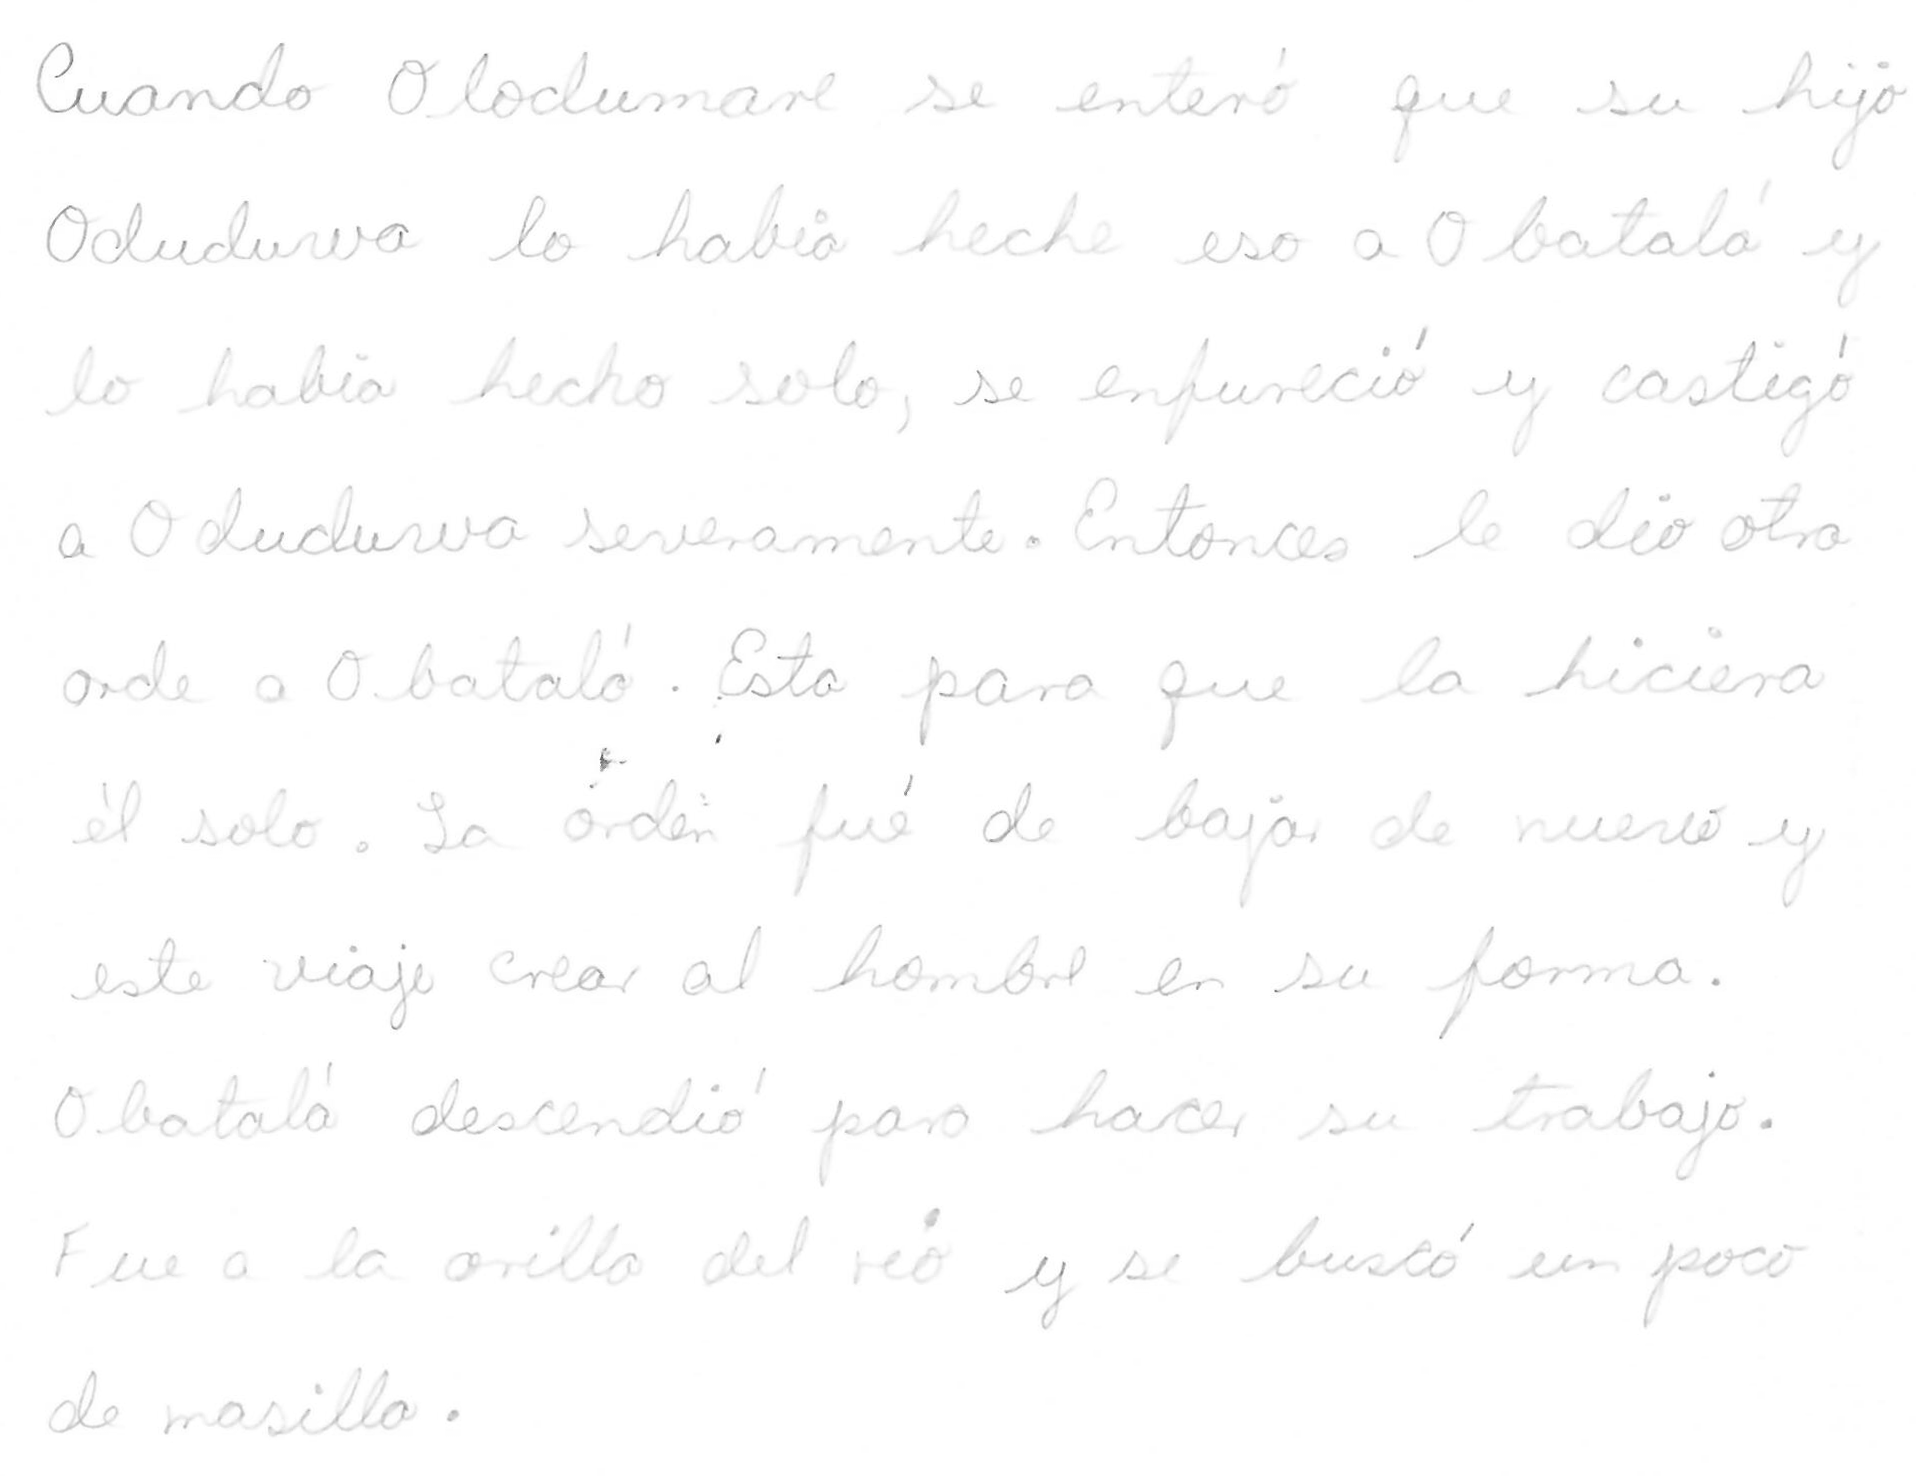 Cuando Olodumare se enteró que su hijo
Odudurva lo había heche eso a Obatalá y
lo había hecho solo, se enfureció y castigó
a Odudurva severamente. Entonces le dio otra
orde a Obatalá. Esta para que la hiciera
él solo. La orden fué de bajar de nuevo y
este viaje crear al hombre en su forma.
Obatalá descendió para hacer su trabajo.
Fue a la orilla del río y se buscó un poco
de masilla.